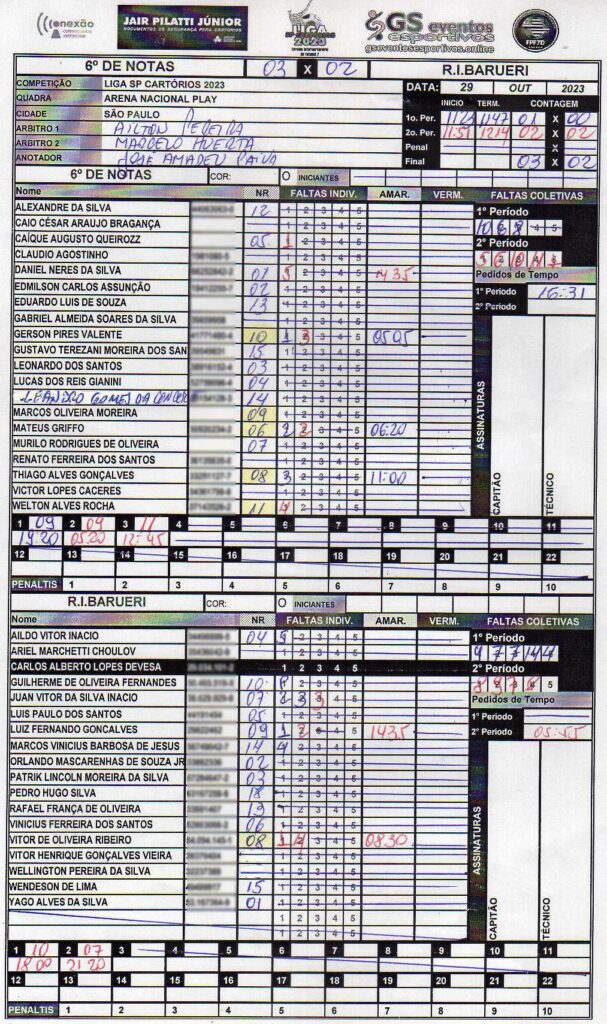 Conexão
JAIR PILATTI JÚNIOR
DOCUMENTOS DE SEGURANÇA PARA CARTÓRIOS
LIGA
SP CARTÓRIOS
2023
GS eventos esportivos
gseventosesportivos.online
FPF7D
6º DE NOTAS 03 X 02 R.I.BARUERI
COMPETIÇÃO LIGA SP CARTÓRIOS 2023 DATA: 29 OUT 2023
QUADRA ARENA NACIONAL PLAY INICIO TERM. CONTAGEM
CIDADE SÃO PAULO 1o. Per. 11:23 1147 01 X 00
ARBITRO 1 AILTON PEREIRA 2o. Per. 11:51 1214 02 X 02
ARBITRO 2 MARCELO HUERTA Penal X
ANOTADOR JOSE AMADEU PAIVA Final 03 X 02
6º DE NOTAS COR: O INICIANTES
Nome NR FALTAS INDIV. AMAR. VERM. FALTAS COLETIVAS
ALEXANDRE DA SILVA 12 1 2 3 4 5 1º Período
CAIO CÉSAR ARAUJO BRAGANÇA 1 2 3 4 5
CAÍQUE AUGUSTO QUEIROZZ 05 1 2 3 4 5 2º Período
CLAUDIO AGOSTINHO 1 2 3 4 5
DANIEL NERES DA SILVA 01 5 2 3 4 5 1435 Pedidos de Tempo
EDMILSON CARLOS ASSUNÇÃO 02 1 2 3 4 5 1º Período 16:31
EDUARDO LUIS DE SOUZA 13 2 3 4 5 2º Período
GABRIEL ALMEIDA SOARES DA SILVA 1 2 3 4 5
GERSON PIRES VALENTE 10 1 3 3 4 5 0505
GUSTAVO TEREZANI MOREIRA DOS SAN 15 1 2 3 4 5
LEONARDO DOS SANTOS 03 1 2 3 4 5
LUCAS DOS REIS GIANINI 04 1 2 3 4 5
LEANDRO GOMES DA 14 1 2 3 4 5
MARCOS OLIVEIRA MOREIRA 09 1 2 3 4 5
MATEUS GRIFFO 06 2 2 3 4 5 06:20
MURILO RODRIGUES DE OLIVEIRA 07 1 2 3 4 5
RENATO FERREIRA DOS SANTOS 1 2 3 4 5
THIAGO ALVES GONÇALVES 08 3 2 3 4 5 11:00
VICTOR LOPES CACERES 1 2 3 4 5
WELTON ALVES ROCHA 11 4 2 3 4 5
ASSINATURAS
CAPITÃO
TÉCNICO
1 09 2 04 3 11 4 5 6 7 8 9 10 11
19:20 05:20 12:45
12 13 14 15 16 17 18 19 20 21 22
PENALTIS 1 2 3 4 5 6 7 8 9 10
R.I.BARUERI COR: O INICIANTES
Nome NR FALTAS INDIV. AMAR. VERM. FALTAS COLETIVAS
AILDO VITOR INACIO 04 5 2 3 4 5 1º Período
ARIEL MARCHETTI CHOULOV 1 2 3 4 5
CARLOS ALBERTO LOPES DEVESA 1 2 3 4 5 2º Período
GUILHERME DE OLIVEIRA FERNANDES 10 8 2 3 4 5
JUAN VITOR DA SILVA INACIO 07 2 3 3 4 5 Pedidos de Tempo
LUIS PAULO DOS SANTOS 05 1 2 3 4 5 1º Período
LUIZ FERNANDO GONCALVES 09 1 2 4 5 1435 2º Período
MARCOS VINICIUS BARBOSA DE JESUS 14 4 2 3 4 5
ORLANDO MASCARENHAS DE SOUZA JR 02 1 2 3 4 5
PATRIK LINCOLN MOREIRA DA SILVA 03 1 2 3 4 5
PEDRO HUGO SILVA 18 1 2 3 4 5
RAFAEL FRANÇA DE OLIVEIRA 19 1 2 3 4 5
VINICIUS FERREIRA DOS SANTOS 06 1 2 3 4 5
VITOR DE OLIVEIRA RIBEIRO 08 1 4 3 4 5 0830
VITOR HENRIQUE GONÇALVES VIEIRA 1 2 3 4 5
WELLINGTON PEREIRA DA SILVA 1 2 3 4 5
WENDESON DE LIMA 15 1 2 3 4 5
YAGO ALVES DA SILVA 01 1 2 3 4 5
1 2 3 4 5
1 2 3 4 5
ASSINATURAS
CAPITÃO
TÉCNICO
1 10 2 07 3 4 5 6 7 8 9 10 11
18:00 21:20
12 13 14 15 16 17 18 19 20 21 22
PENALTIS 1 2 3 4 5 6 7 8 9 10